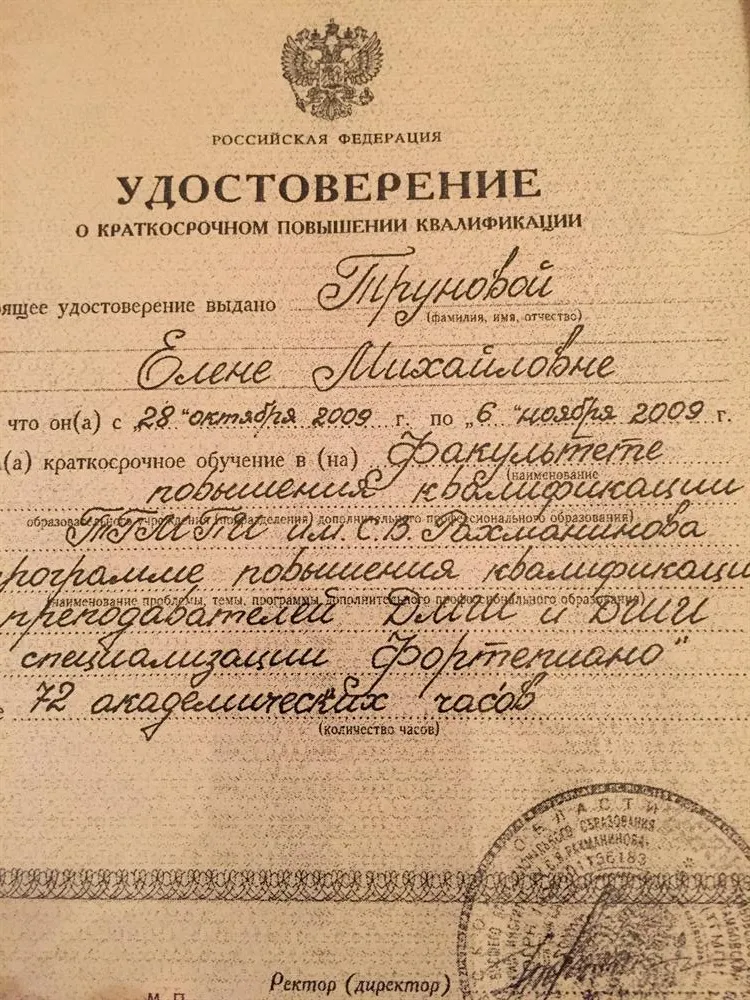 РОССИЙСКАЯ ФЕДЕРАЦИЯ
УДОСТОВЕРЕНИЕ
О КРАТКОСРОЧНОМ ПОВЫШЕНИИ КВАЛИФИКАЦИИ
оящее удостоверение выдано Труновой
(фамилия, имя, отчество)
Елене Михайловне
что он(а) с „28 " октября 2009 г. по „6 " ноября 2009 г.
(а) краткосрочное обучение в (на) Факультете
(наименование
повышения квалификации
образовательного учреждения (подразделения) дополнительного профессионального образования)
ТГМПИ им. С.В. Рахманинова
программе повышения квалификации
(наименование проблемы, темы, программы дополнительного профессионального образования)
преподавателей ДМШ и ДШИ
специализации Фортепиано"
72 академических часов
(количество часов)
ОБЛАСТИ
ОБРАЗОВАНИЯ
РАХМАНИНОВА
Ректор (директор)
М. П.